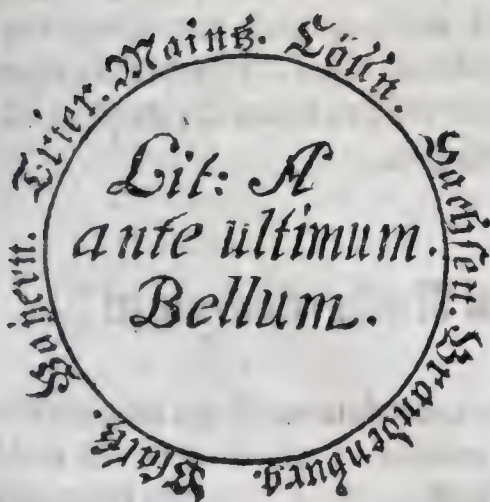 Trier. Maintz. Cölln. Sachsen. Brandenburg. Pfaltz. Bäyern.
Lit: A
ante ultimum.
Bellum.